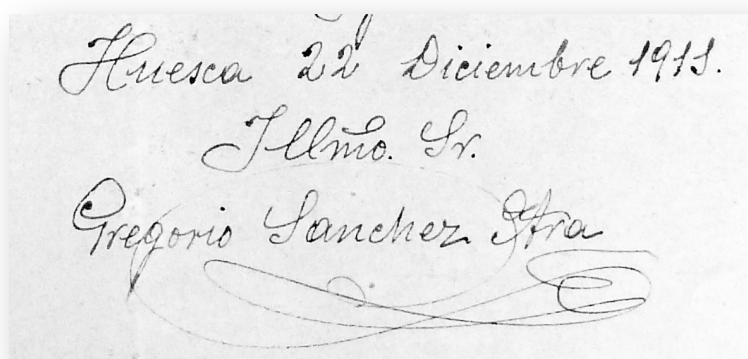 Huesca 22 Diciembre 1911.
Illmo. Sr.
Gregorio Sanchez